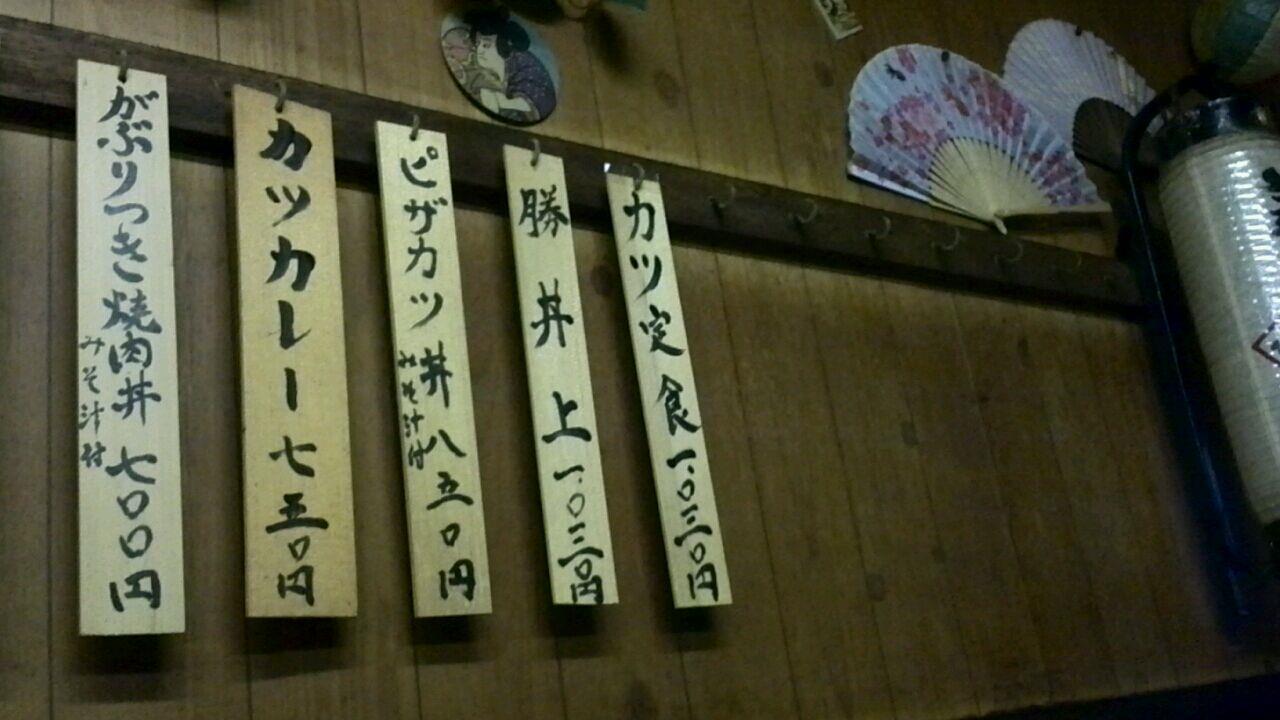 カツ定食 一.〇三〇円
勝丼 上 一.〇三〇円
ピザカツ丼 八五〇円
みそ汁付
カツカレー 七五〇円
がぶりつき焼肉丼 七〇〇円
みそ汁付